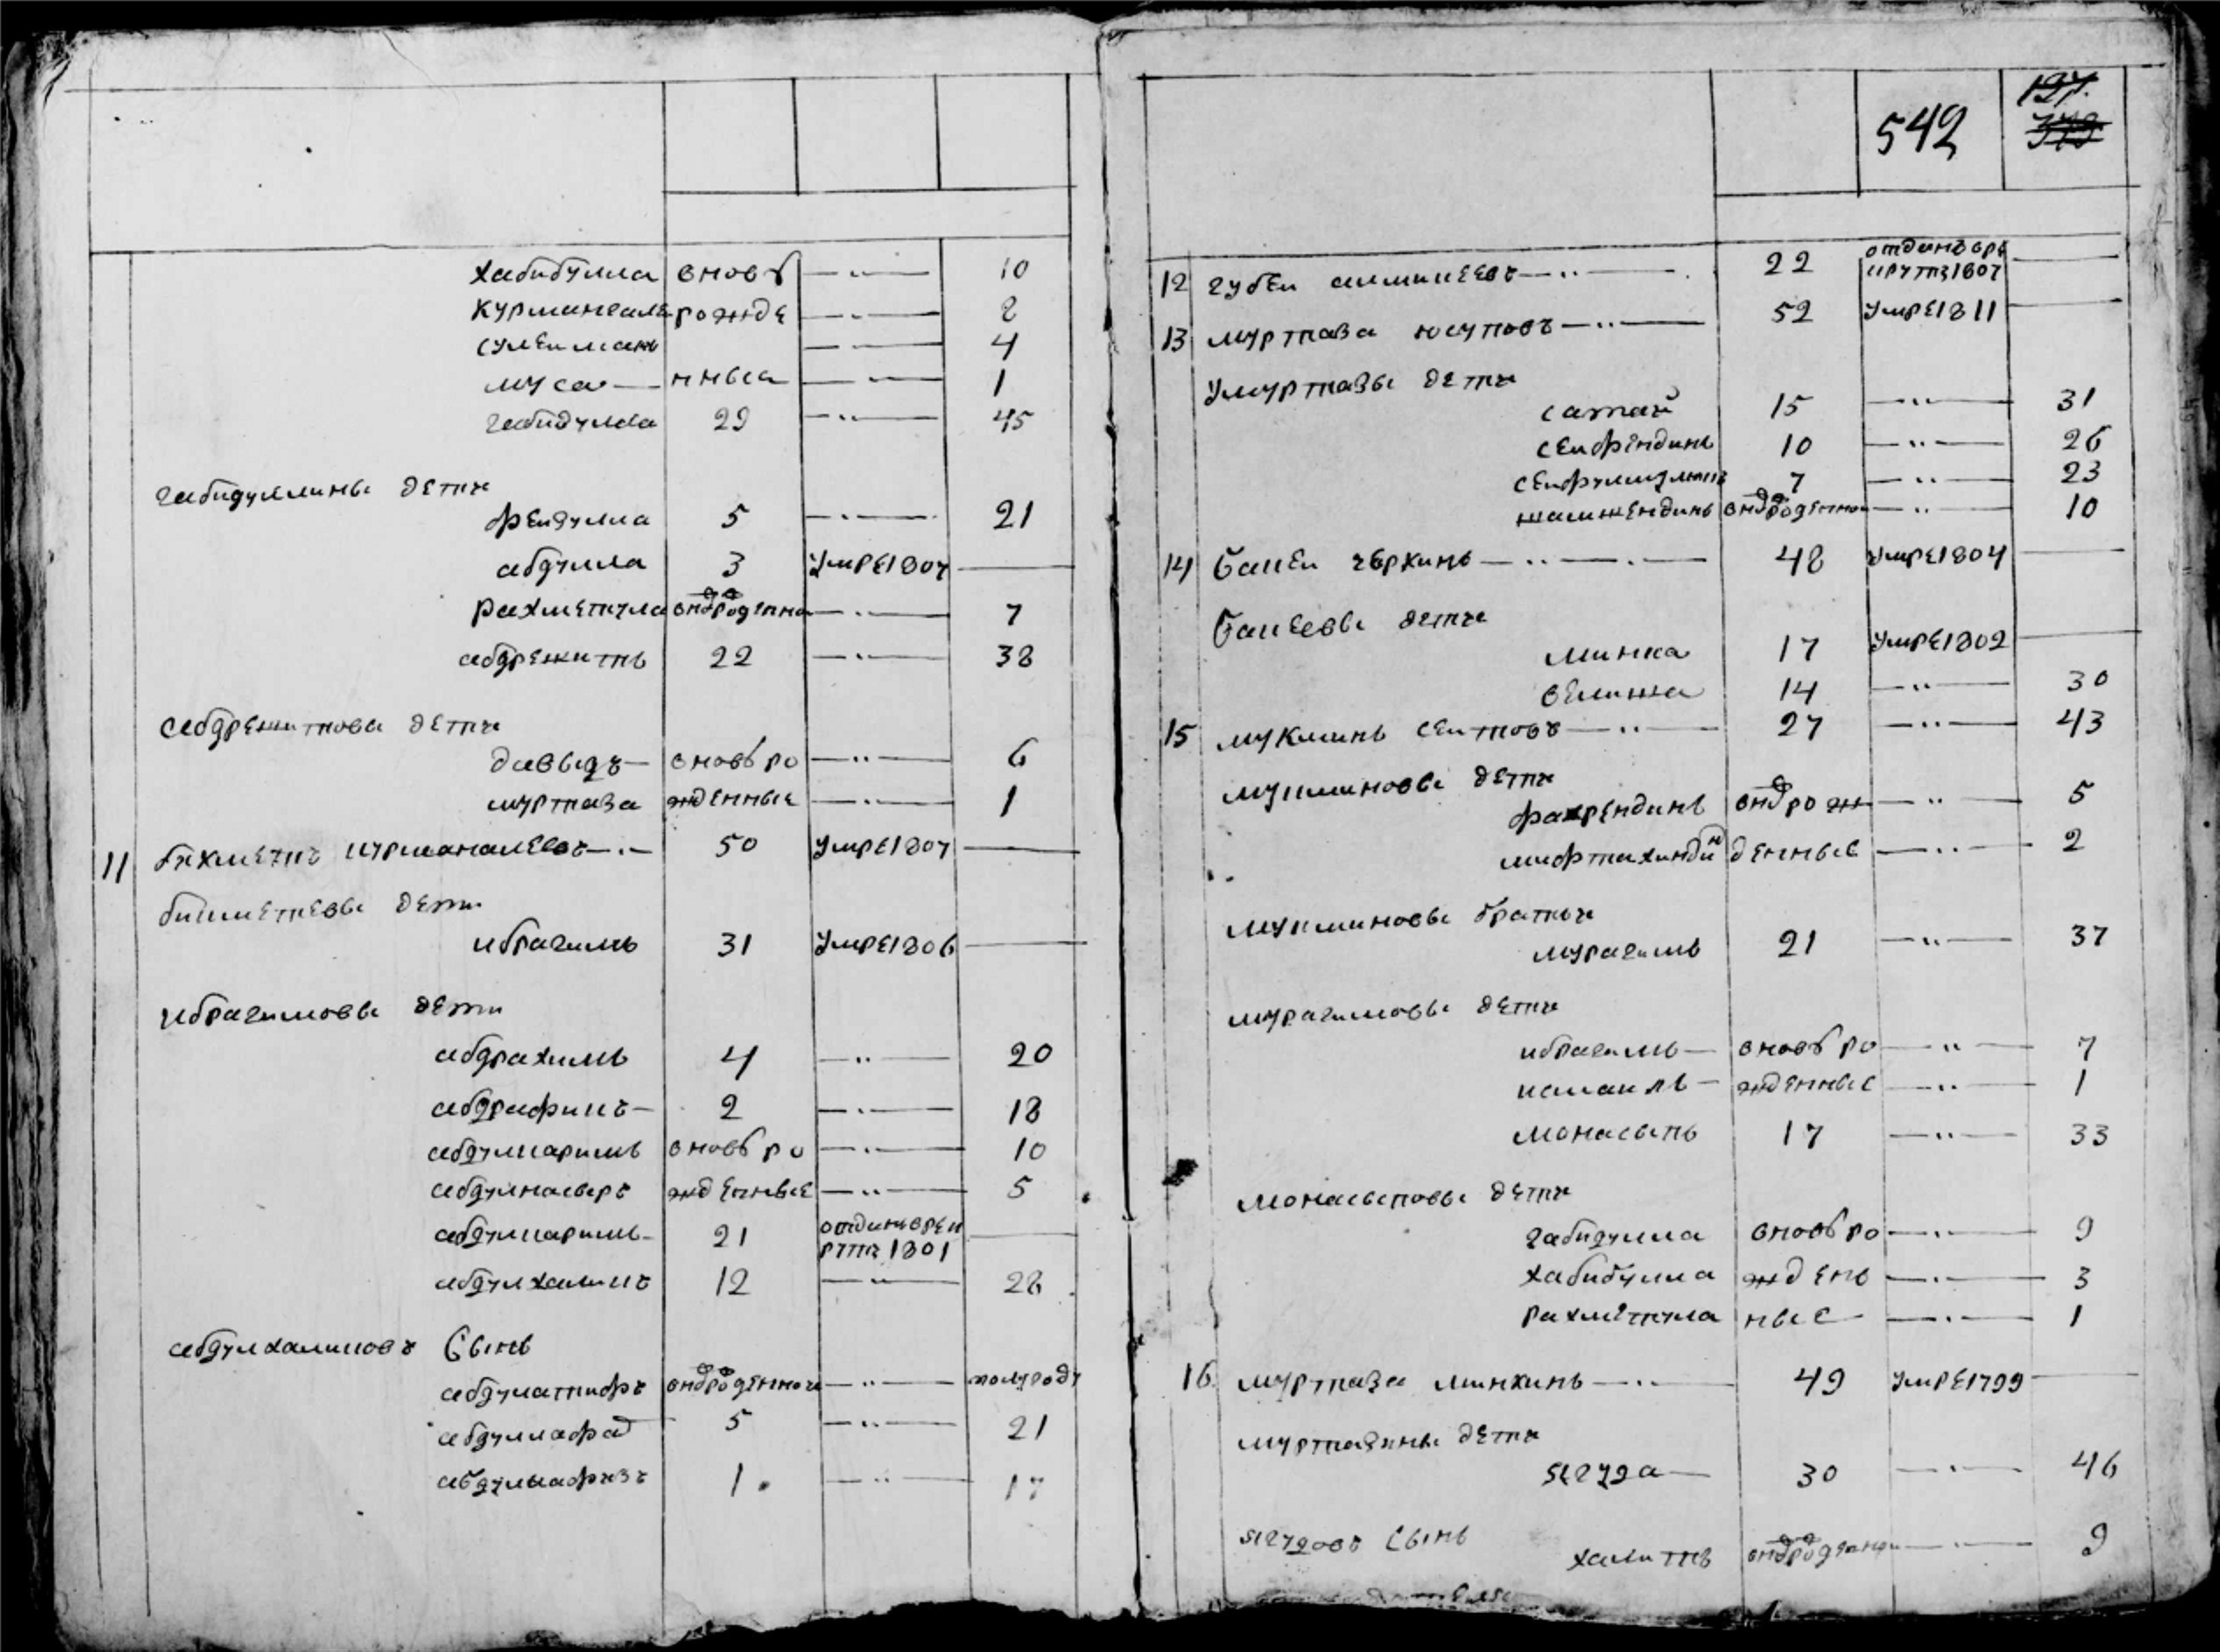 хабибулла вновь — 10
курмангали рожде — 2
сулейманъ — 4
муса — нныа — 1
габидулла 29 — 45
габидуллины дети
фейзулла 5 — 21
абдулла 3 умре 1807 —
рахметулла вновьрожденна — 7
абдрешитъ 22 — 38
абдрешитовы дети
давыдъ — вновь ро — 6
муртаза жденныє — 1
11 бикметъ курманалеевъ — 50 умре 1807 —
бикметевы дети
ибрагимъ 31 умре 1806 —
ибрагимовы дети
абдрахимъ 4 — 20
абдрафикъ — 2 — 18
абдулкаримъ вновь ро — 10
абдулнасыръ жденные — 5
абдулкаримъ — 21 отданъ в рек
рути 1801 —
абдулхаликъ 12 — 28
абдулхаликовъ сынъ
абдулатифъ вновьрожденной — полугоду
абдуллафа 5 — 21
абдулвафизъ 1 — 17
542
197.
379
12 губей алмакеевъ — 22 отданъ в ре
круты 1807 —
13 муртаза юсуповъ — 52 умре 1811 —
у муртазы дети
сатай 15 — 31
сейфендинъ 10 — 26
сейфулмулюкъ 7 — 23
шамшендинъ вновьрожденной — 10
14 бакей черкинъ — 48 умре 1804 —
бакеевы дети
минка 17 умре 1802 —
велиша 14 — 30
15 мукминъ сеитовъ — 27 — 43
мукминовы дети
фахрендинъ вновьрож — 5
мифтахиндинъ денные — 2
мукминовы братья
мурагимъ 21 — 37
мурагимовы дети
ибрагимъ — вновь ро — 7
исмаилъ — жденные — 1
монасыпъ 17 — 33
монасыповы дети
габидулла вновь ро — 9
хабибулла ждень — 3
рахметулла ные — 1
16 муртаза минкинъ — 49 умре 1799 —
муртазины дети
ягуда — 30 — 46
ягудовъ сынъ
халитъ вновьрожденной — 9